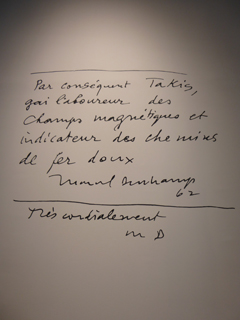 Par conséquent Takis,
gai laboureur des
champs magnétiques et
indicateur des chemins
de fer doux
Marcel Duchamp
62
Très cordialement
M D